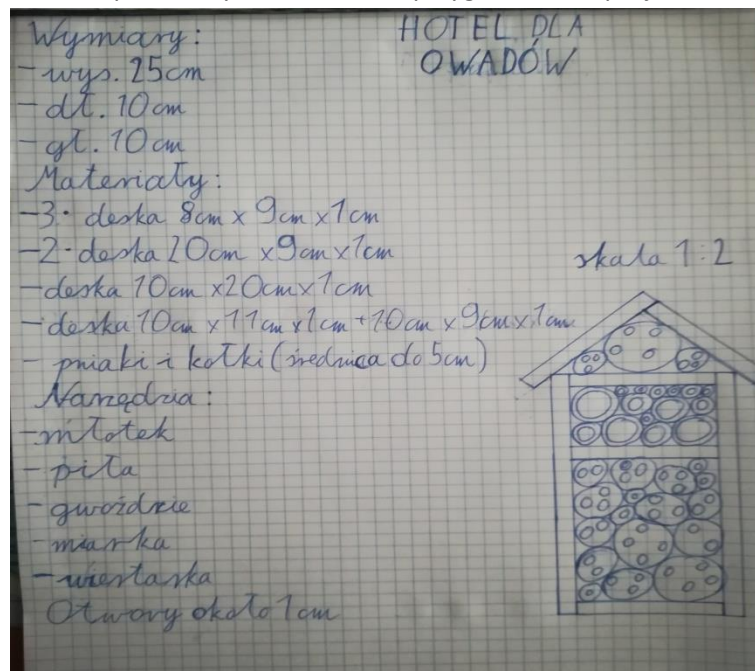 HOTEL DLA
OWADÓW
Wymiary:
- wys. 25cm
- dł. 10cm
- gł. 10cm
Materiały:
- 3 · deska 8cm x 9cm x 1cm
- 2 · deska 20cm x 9cm x 1cm
- deska 10cm x 20cm x 1cm
- deska 10cm x 11cm x 1cm + 10cm x 9cm x 1cm
- pniaki i kołki (średnica do 5cm)
Narzędzia:
- młotek
- piła
- gwoździe
- miarka
- wiertarka
Otwory około 1cm
skala 1:2